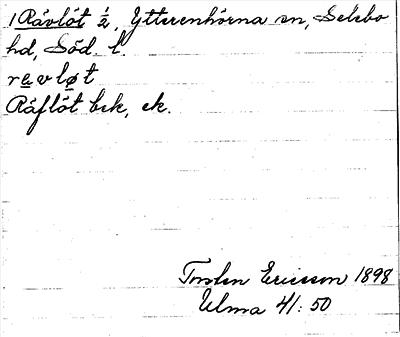 1 Rävlöt ½, Ytterenhörna sn, Selebo
hd, Söd. l.
revløt
Räflöt bsk, ek.
Torsten Ericsson 1898
Ulma 41:50